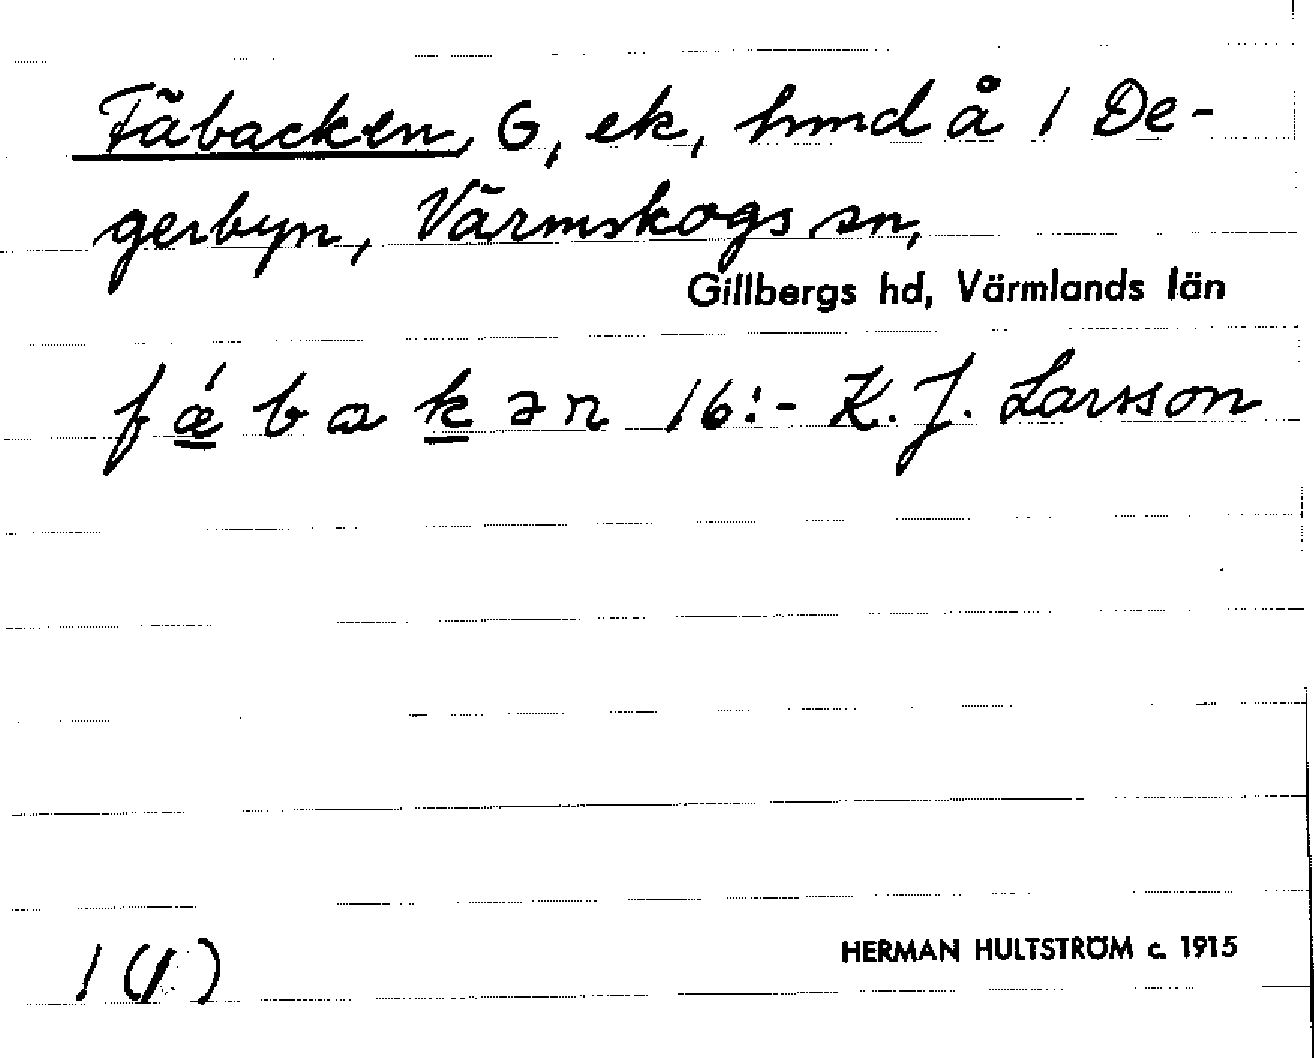 Fäbacken, G, ek, hmd å 1 De-
gerbyn, Värmskogs sn,
Gillbergs hd, Värmlands län
fǽbakən 16:- K. J. Larsson
1 (1)
HERMAN HULTSTRÖM c. 1915